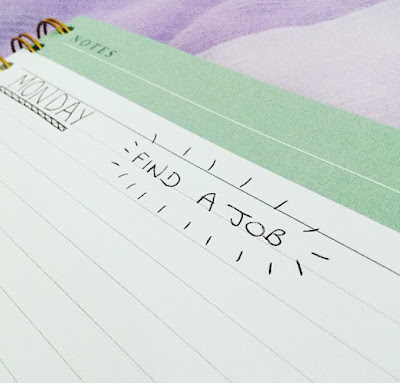 NOTES
MONDAY
FIND A JOB